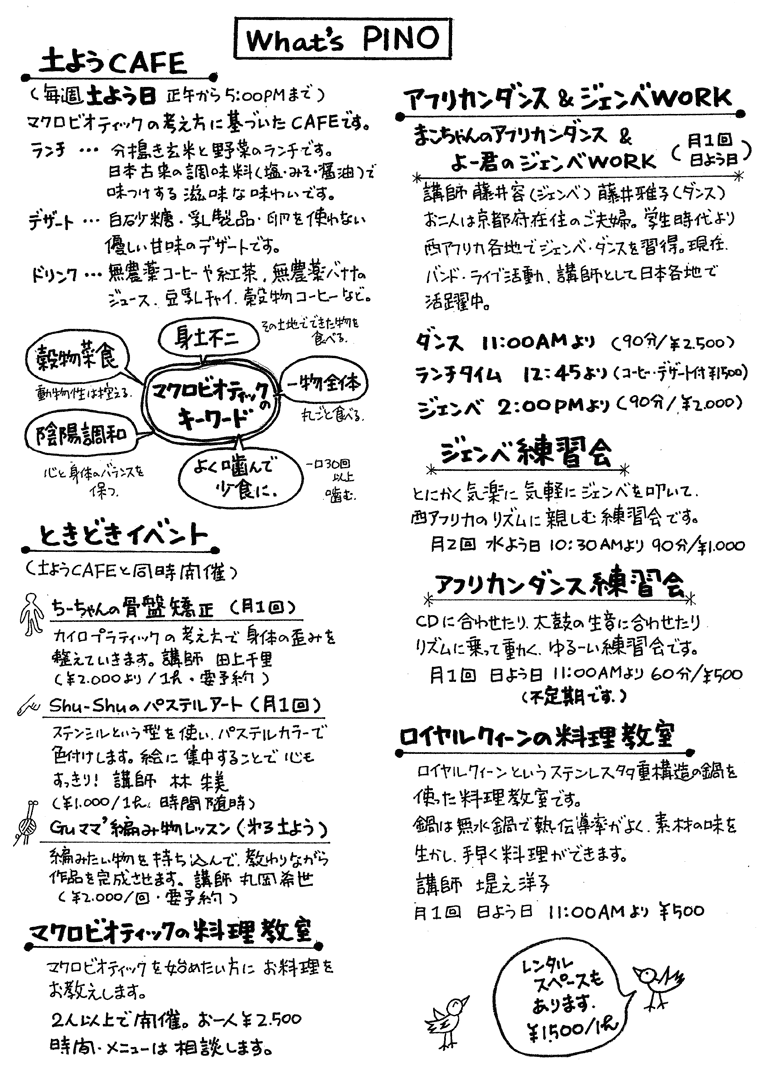 What's PINO
土ようCAFE
(毎週土よう日 正午から5:00PMまで)
マクロビオティックの考え方に基づいたCAFEです。
ランチ … 分搗き玄米と野菜のランチです。
日本古来の調味料(塩・みそ・醤油)で
味つけする滋味な味わいです。
デザート … 白砂糖・乳製品・卵を使わない
優しい甘味のデザートです。
ドリンク … 無農薬コーヒーや紅茶、無農薬バナナの
ジュース、豆乳チャイ、穀物コーヒーなど。
マクロビオティックの
キーワード
身土不二
その土地でできた物を
食べる.
穀物菜食
動物性は控える.
一物全体
丸ごと食べる.
陰陽調和
心と身体のバランスを
保つ.
よく噛んで
少食に.
一口30回
以上
噛む.
ときどきイベント
(土ようCAFEと同時開催)
ちーちゃんの骨盤矯正 (月1回)
カイロプラティックの考え方で身体の歪みを
整えていきます。講師 田上千里
(¥2.000より/1h・要予約)
Shu-Shuのパステルアート(月1回)
ステンシルという型を使い、パステルカラーで
色付けします。絵に集中することで心も
すっきり! 講師 林 朱美
(¥1.000/1h、時間随時)
Guママ'編み物レッスン(第3土よう)
編みたい物を持ち込んで、教わりながら
作品を完成させます。講師 丸岡希世
(¥2.000/回・要予約)
マクロビオティックの料理教室
マクロビオティックを始めたい方に お料理を
お教えします。
2人以上で開催。お一人¥2.500
時間・メニューは相談します。
アフリカンダンス & ジェンベWORK
まこちゃんのアフリカンダンス &
よー君のジェンベWORK
(月1回
日よう日)
講師 藤井容(ジェンベ) 藤井雅子(ダンス)
お二人は京都府在住のご夫婦。学生時代より
西アフリカ各地でジェンベ・ダンスを習得。現在、
バンド・ライブ活動、講師として日本各地で
活躍中。
ダンス 11:00AMより (90分/¥2.500)
ランチタイム 12:45より(コーヒー・デザート付¥1500)
ジェンベ 2:00PMより(90分/¥2.000)
ジェンベ練習会
とにかく気楽に気軽にジェンベを叩いて、
西アフリカのリズムに親しむ練習会です。
月2回 水よう日 10:30AMより 90分/¥1.000
アフリカンダンス練習会
CDに合わせたり、太鼓の生音に合わせたり
リズムに乗って動かく、ゆるーい練習会です。
月1回 日よう日 11:00AMより 60分/¥500
(不定期です.)
ロイヤルクィーンの料理教室
ロイヤルクィーンというステンレス多重構造の鍋を
使った料理教室です。
鍋は無水鍋で熱伝導率がよく、素材の味を
生かし、手早く料理ができます。
講師 堤え洋子
月1回 日よう日 11:00AMより ¥500
レンタル
スペースも
あります.
¥1,500/1h